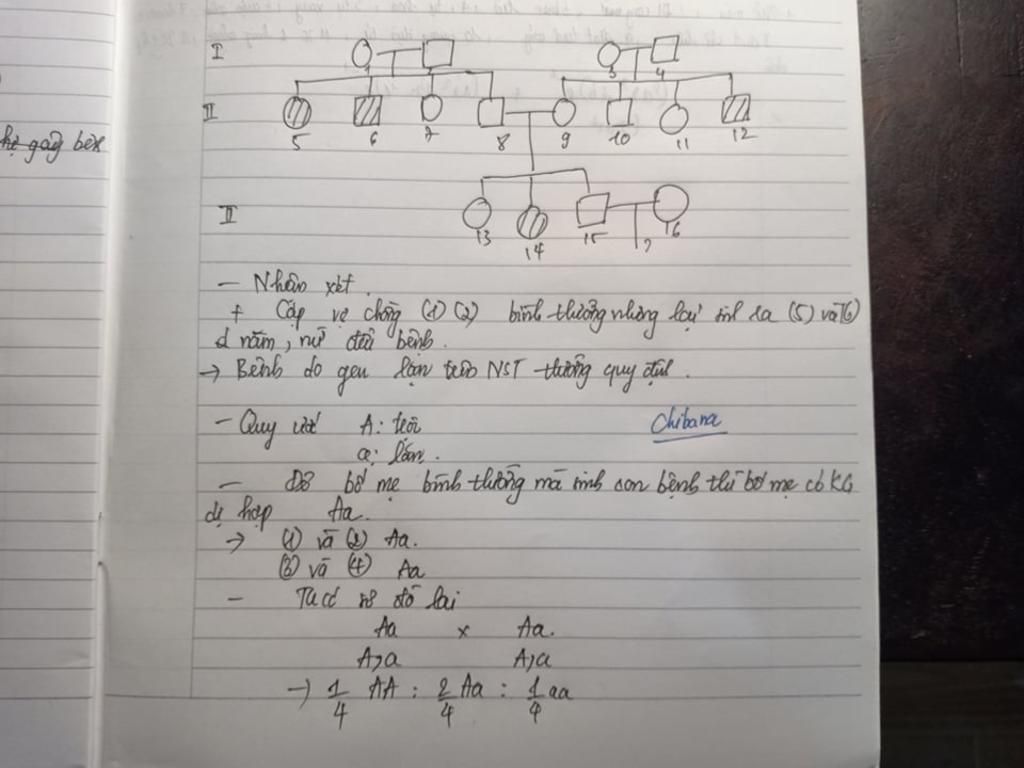 hệ gãy bèx
I
1 2 3 4
II
5 6 7 8 9 10 11 12
II
13 14 15 16
?
- Nhận xét.
+ Cặp vợ chồng (1) (2) bình thường nhưng lại sinh ra (5) và (6)
d nam, nữ đều bệnh.
→ Bệnh do gen lặn trên NST thường quy định.
- Quy ước A: trội
a: lặn.
Chibana
- Để bố mẹ bình thường mà sinh con bệnh thì bố mẹ có KG
dị hợp Aa.
→ (1) và (2) Aa.
(3) và (4) Aa
- Ta có sơ đồ lai
Aa x Aa.
A,a A,a
→ 1/4 AA : 2/4 Aa : 1/4 aa